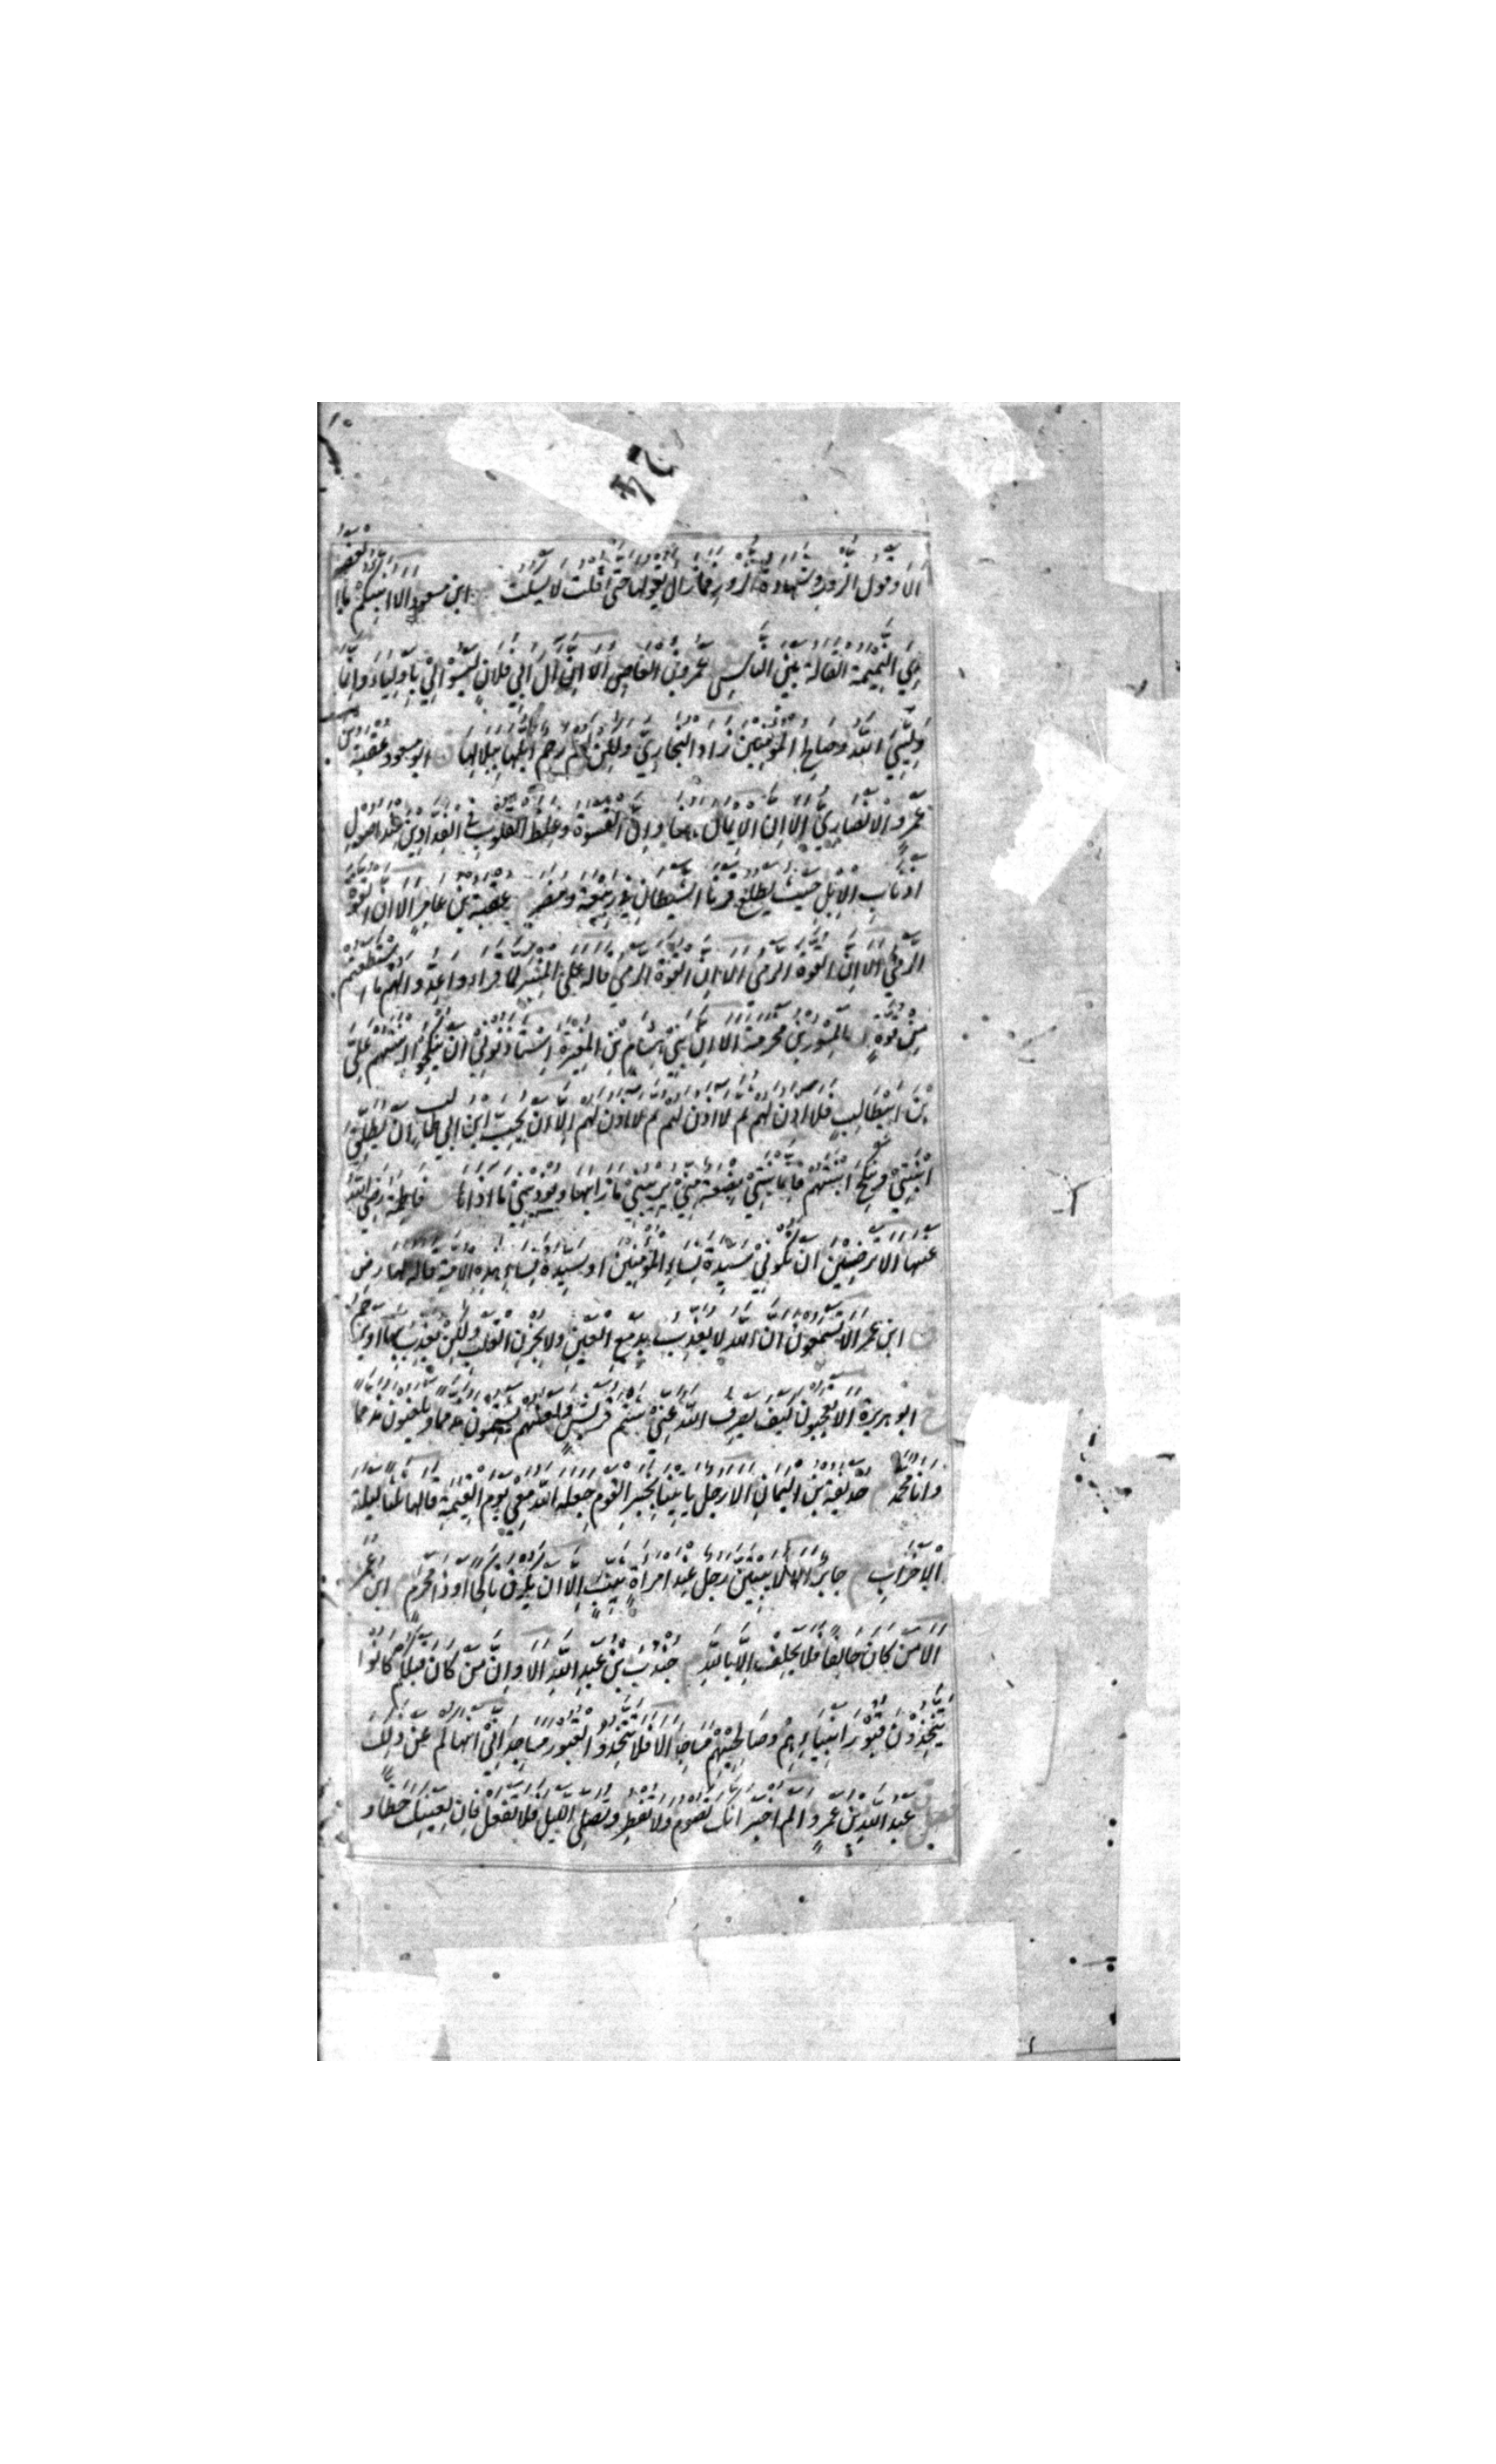 24
الا وقول الزور وشهادة الزور فما زال يقولها حتى قلت لا يسكت ابن مسعود الا انبئكم ما العضه
هي النميمة القالة بين الناس عمرو بن العاص الا ان آل ابي فلان ليسوا لي باولياء وانما
وليي الله وصالح المؤمنين زاد البخاري ولكن لهم رحم ابلها ببلالها ابو مسعود عقبة بن
عمرو الانصاري الا ان الايمان هاهنا وان القسوة وغلظ القلوب في الفدادين عند اصول
اذناب الابل حيث يطلع قرنا الشيطان في ربيعة ومضر عقبة بن عامر الا ان القوة
الرمي الا ان القوة الرمي الا ان القوة الرمي قاله على المنبر لما قراء واعدوا لهم ما استطعتم
من قوة المسور بن مخرمة الا ان بني هشام بن المغيرة استاذنوني ان ينكحوا ابنتهم علي
بن ابيطالب فلا اذن لهم ثم لا اذن لهم ثم لا اذن لهم الا ان يحب ابن ابي طالب ان يطلق
ابنتي وينكح ابنتهم فانما ابنتي بضعة مني يريبني ما رابها ويوذيني ما اذاها فاطمة رضي الله
عنها الا ترضين ان تكوني سيدة نساء المؤمنين او سيدة نساء هذه الامة قاله لها رض
ق ابن عمر الا تسمعون ان الله لا يعذب بدمع العين ولا بحزن القلب ولكن يعذب بهذا او يرحم
خ ابو هريرة الا تعجبون كيف يصرف الله عني شتم قريش ولعنهم يشتمون مذمما ويلعنون مذمما
وانا محمد حذيفة بن اليمان الا رجل ياتينا بخبر القوم جعله الله معي يوم القيمة قالها ثلثا ليلة
الاحزاب جابر الا لا يبيتن رجل عند امراة ثيب الا ان يكون ناكحا او ذا محرم ابن عمر
الا من كان حالفا فلا يحلف الا بالله جندب بن عبد الله الا وان من كان قبلكم كانوا
يتخذون قبور انبياءهم وصالحيهم مساجد الا فلا تتخذوا القبور مساجد اني انهاكم عن ذلك
عبد الله بن عمرو الم اخبر انك تصوم ولا تفطر وتصلي الليل فلا تفعل فان لعينيك حظا و